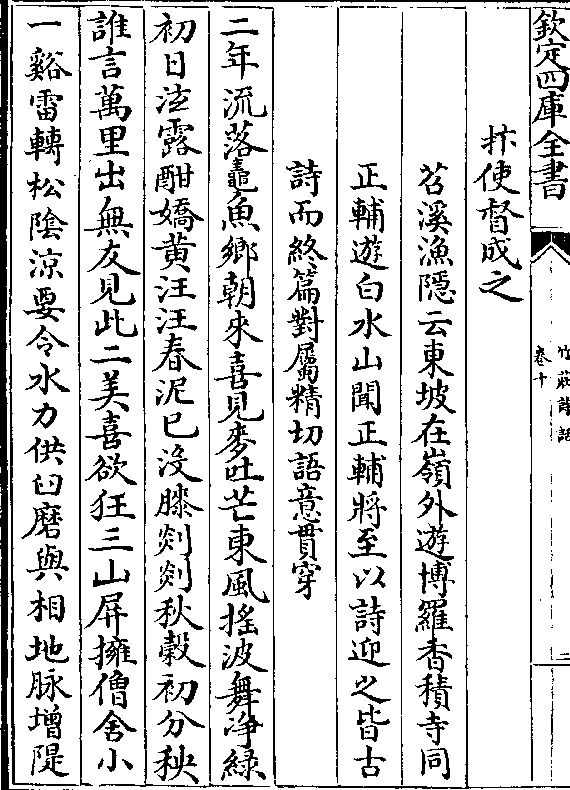 欽定四庫全書
竹莊詩話
卷十
二
抃使督成之
苕溪漁隱云東坡在嶺外遊博羅香積寺同
正輔遊白水山聞正輔將至以詩迎之皆古
詩而終篇對屬精切語意貫穿
二年流落鼃魚鄉朝來喜見麥吐芒東風搖波舞淨綠
初日泫露酣嬌黄汪汪春泥已没膝剡剡秋穀初分秧
誰言萬里出無友見此二美喜欲狂三山屏擁僧舍小
一谿雷轉松陰涼要令水力供臼磨與相地脉增隄